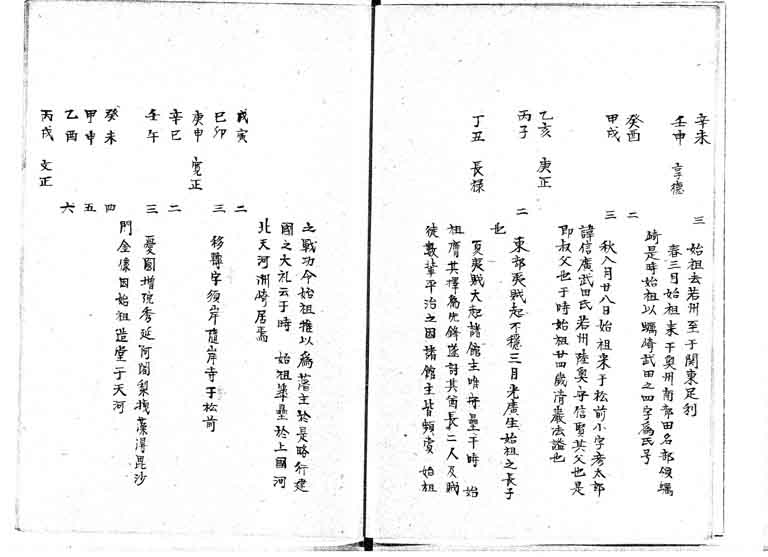 辛未 三 始祖去若州至于関東足利
壬申 享徳 春三月始祖来于奥州南部田名部領蠣
崎是時始祖以蠣崎武田之四字為氏号
癸酉 二
甲戌 三 秋八月廿八日始祖来于松前小字彦太郎
諱信廣武田氏若州陸奥守信賢其父也是
即叔父也于時始祖廿四歳清巌法諡也
乙亥 康正
丙子 二 東部夷賊起不穏三月光廣生始祖之長子
也
丁丑 長禄 夏夷賊大起諸館主唯守塁于時 始
祖膺其擇為先鋒遂討其酋長二人及賊
徒數輩平治之因諸館主皆頻賞 始祖
之戦功今始祖推以為藩主於是略行建
國之大礼云于時 始祖築壘於上國河
北天河洲崎居焉
戊寅 二
己卯 三 移 寺於 岸隨岸寺于松前
庚申 寛正
辛巳 二
壬午 三 憂國増院秀延阿闍梨 藻得毘沙
門金像因始祖造堂于天河
癸未 四
甲申 五
乙酉 六
丙戌 文正